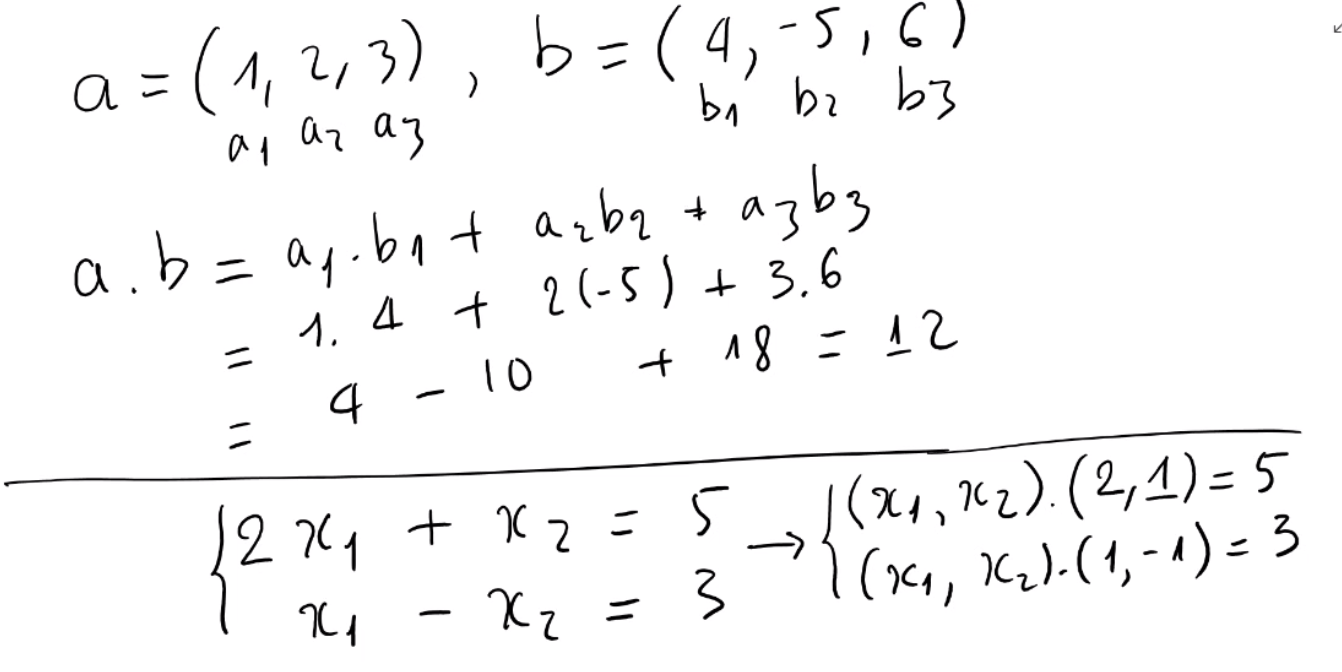 a = (1, 2, 3) , b = (4, -5, 6)
a1 a2 a3 b1 b2 b3
a . b = a1 . b1 + a2b2 + a3b3
= 1. 4 + 2(-5) + 3.6
= 4 - 10 + 18 = 12
{ 2x1 + x2 = 5 → { (x1, x2).(2, 1) = 5
x1 - x2 = 3 (x1, x2).(1, -1) = 3